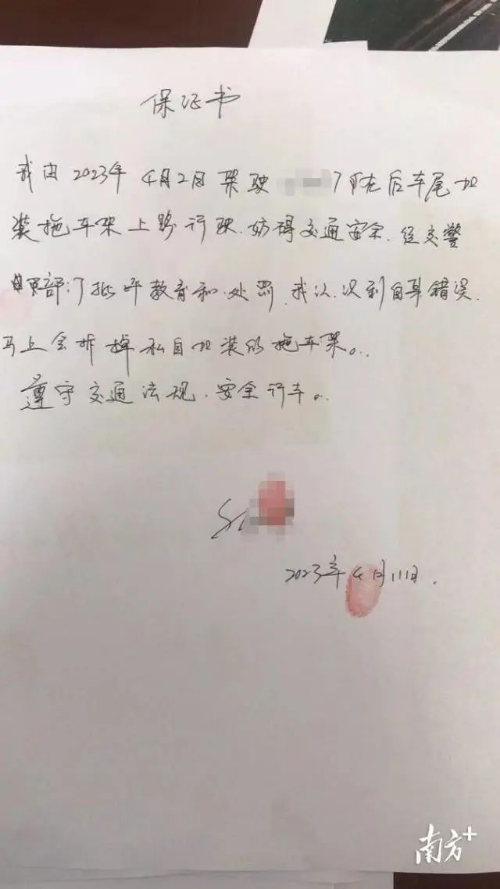 保证书
我由2023年4月2日驾驶 7 在后车尾加
装拖车架上路行驶.妨碍交通安全.经交警
部门批评教育和处罚.我认识到自身错误.
马上会拆掉私自加装的拖车架。
遵守交通法规.安全行车。
2023年4月11日.
南方+